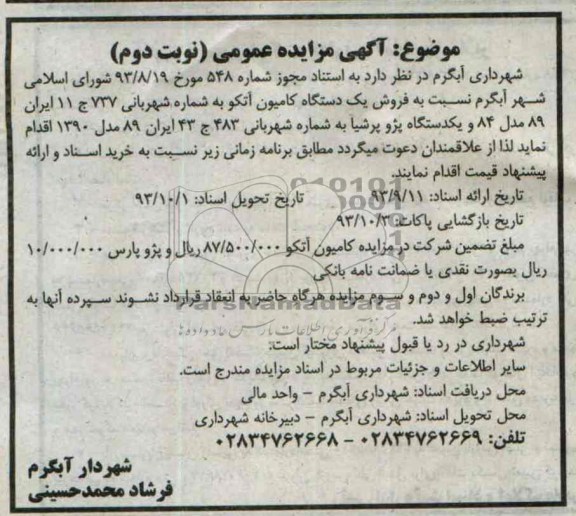 موضوع: آگهی مزایده عمومی (نوبت دوم)
شهرداری آبگرم در نظر دارد به استناد مجوز شماره ۵۴۸ مورخ ۹۳/۸/۱۹ شورای اسلامی
شهر آبگرم نسبت به فروش یک دستگاه کامیون آتکو به شماره شهربانی ۷۳۷ ج ۱۱ ایران
۸۹ مدل ۸۴ و یکدستگاه پژو پرشیا به شماره شهربانی ۴۸۳ ج ۴۳ ایران ۸۹ مدل ۱۳۹۰ اقدام
نماید لذا از علاقمندان دعوت میگردد مطابق برنامه زمانی زیر نسبت به خرید اسناد و ارائه
پیشنهاد قیمت اقدام نمایند.
تاریخ ارائه اسناد: ۹۳/۹/۱۱ تاریخ تحویل اسناد: ۹۳/۱۰/۱
تاریخ بازگشایی پاکات: ۹۳/۱۰/۳
مبلغ تضمین شرکت در مزایده کامیون آتکو ۸۷/۵۰۰/۰۰۰ ریال و پژو پارس ۱۰/۰۰۰/۰۰۰
ریال بصورت نقدی یا ضمانت نامه بانکی
برندگان اول و دوم و سوم مزایده هرگاه حاضر به انعقاد قرارداد نشوند سپرده آنها به
ترتیب ضبط خواهد شد.
ParsNamadData
شهرداری در رد یا قبول پیشنهاد مختار است.
سایر اطلاعات و جزئیات مربوط در اسناد مزایده مندرج است.
محل دریافت اسناد: شهرداری آبگرم – واحد مالی
محل تحویل اسناد: شهرداری آبگرم – دبیرخانه شهرداری
تلفن: ۰۲۸۳۴۷۶۲۶۶۹ – ۰۲۸۳۴۷۶۲۶۶۸
شهردار آبگرم
فرشاد محمدحسینی